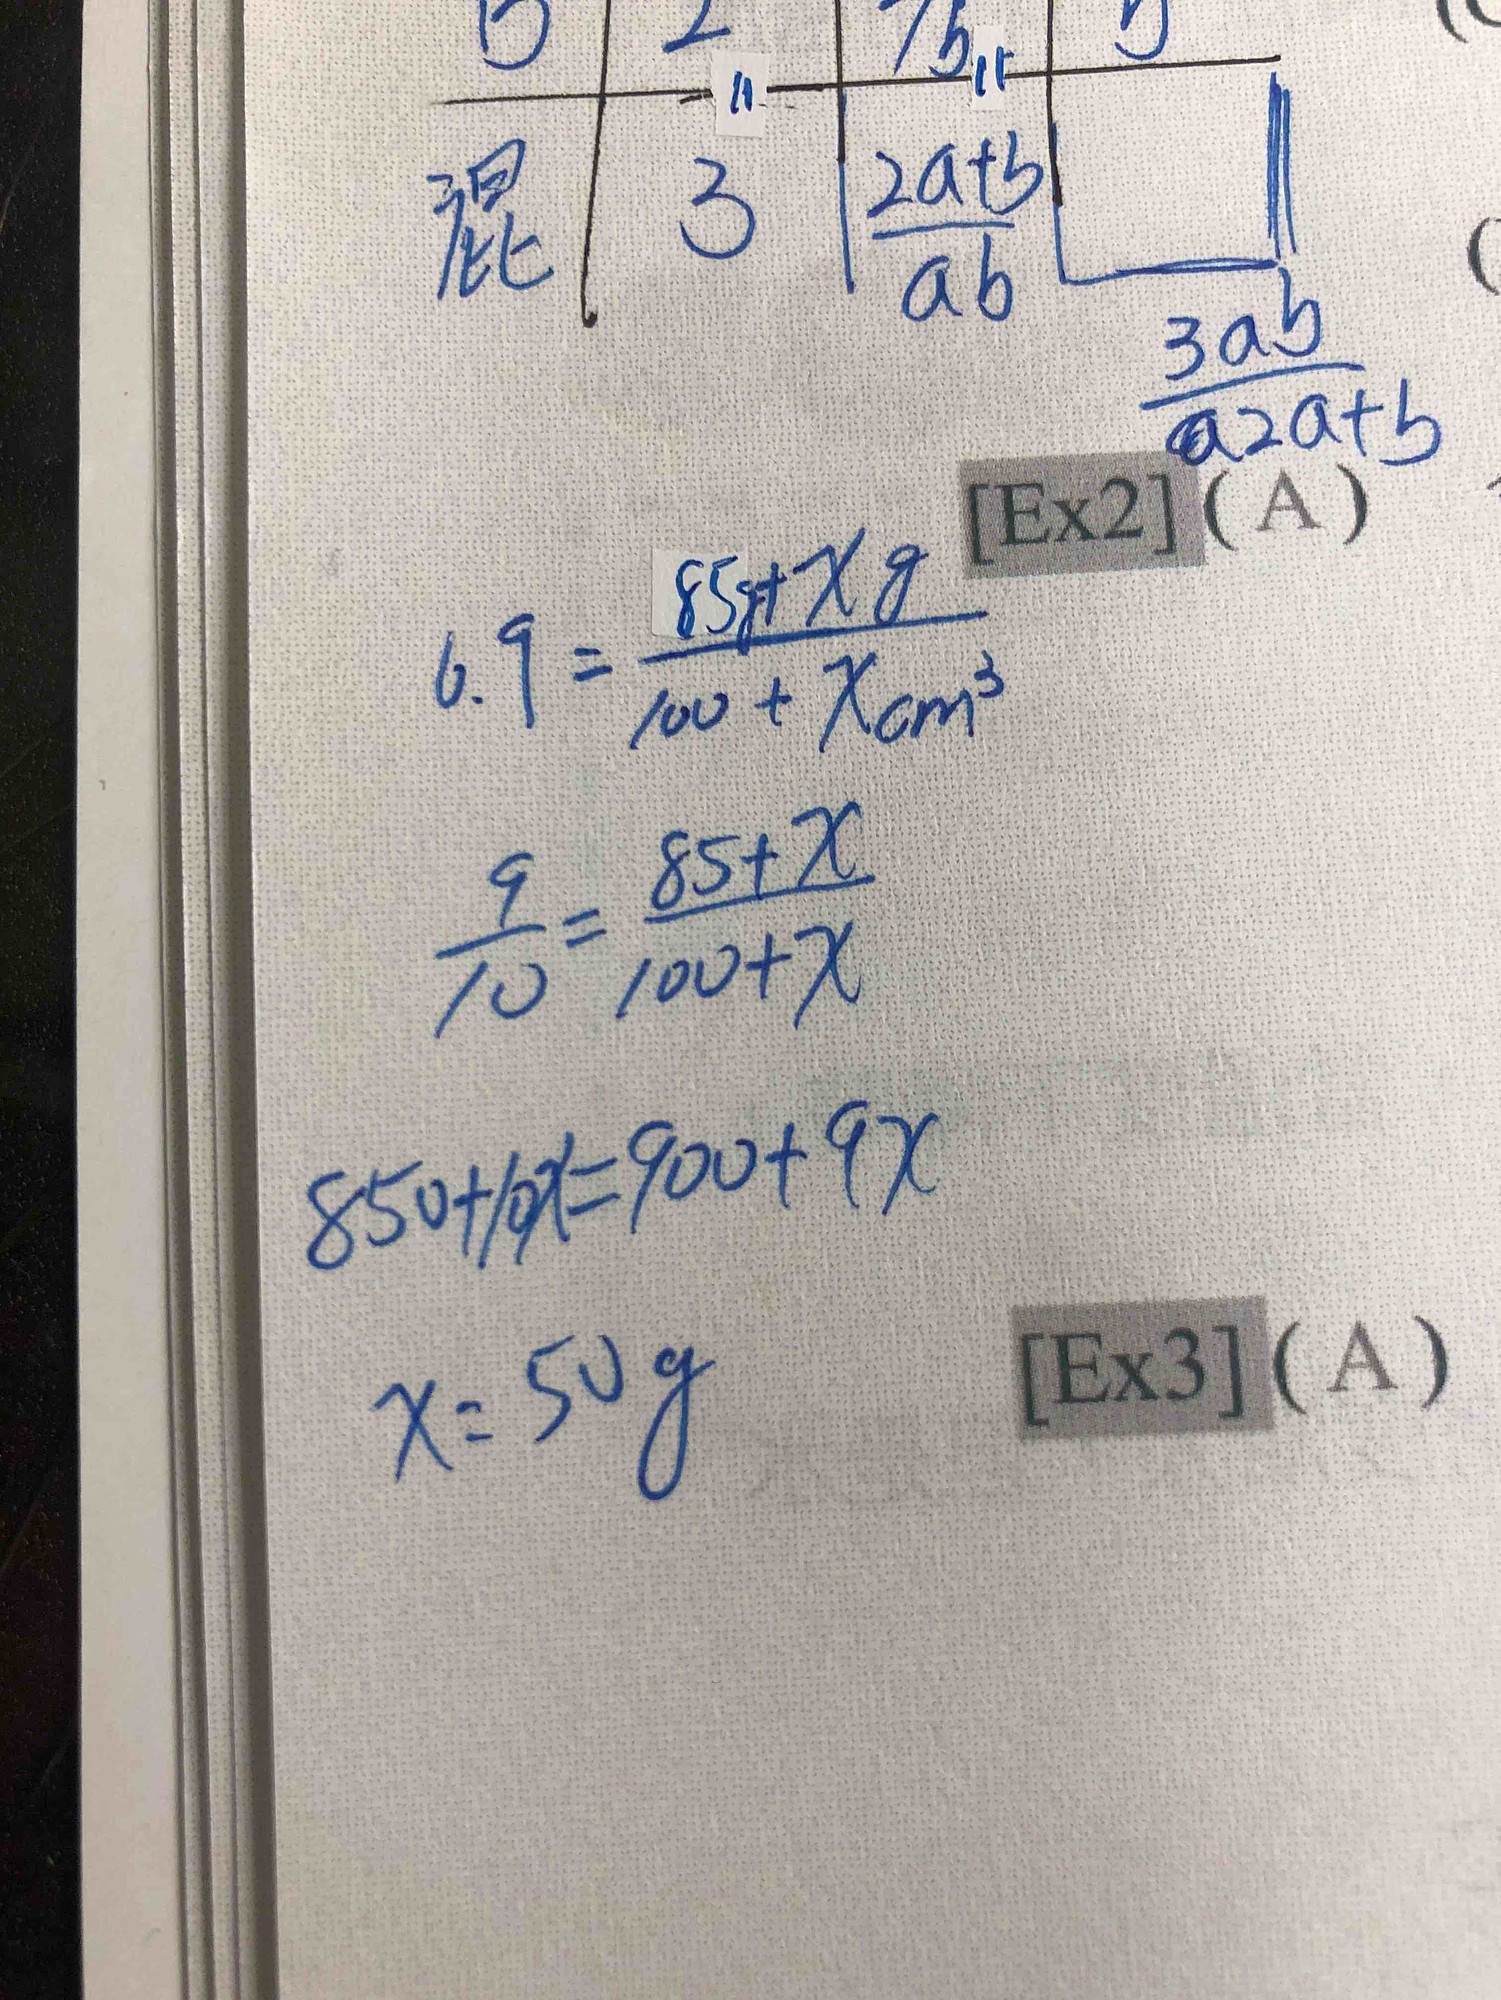 2
混 3 2a+b/ab
3ab/2a+b
[Ex2] ( A )
0.9 = 85g+xg/100+xcm³
9/10 = 85+x/100+x
850+10x=900+9x
x=50g
[Ex3] ( A )